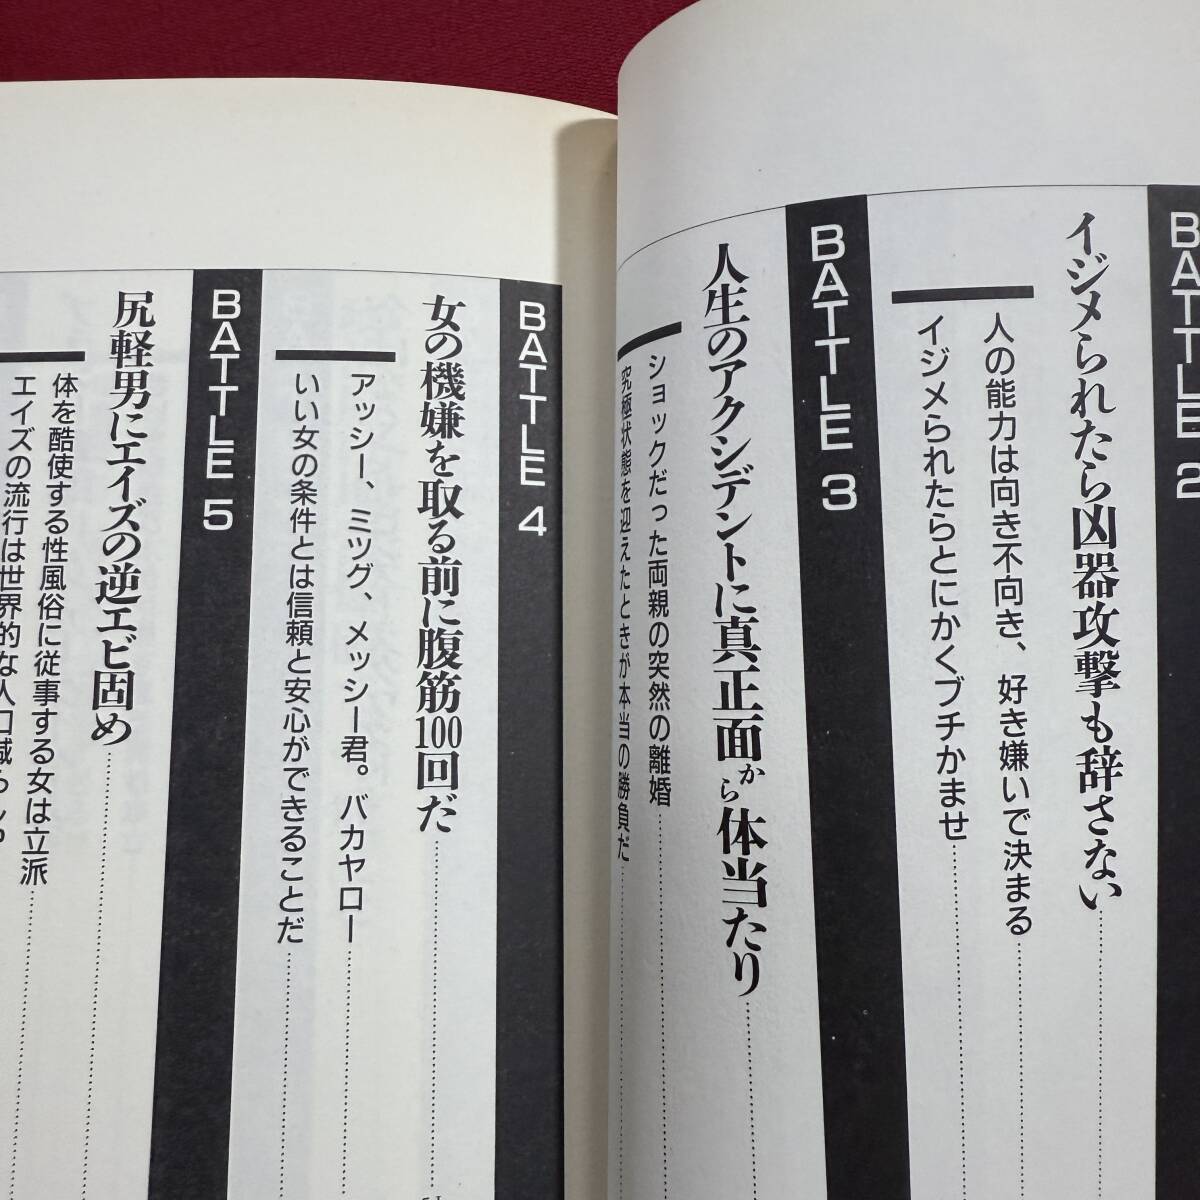 BATTLE 2
イジメられたら凶器攻撃も辞さない
人の能力は向き不向き、好き嫌いで決まる
イジメられたらとにかくブチかませ
BATTLE 3
人生のアクシデントに真正面から体当たり
ショックだった両親の突然の離婚
究極状態を迎えたときが本当の勝負だ
BATTLE 4
女の機嫌を取る前に腹筋100回だ
アッシー、ミツグ、メッシー君。バカヤロー
いい女の条件とは信頼と安心ができることだ
BATTLE 5
尻軽男にエイズの逆エビ固め
体を酷使する性風俗に従事する女は立派
エイズの流行は世界的な人口減らし?